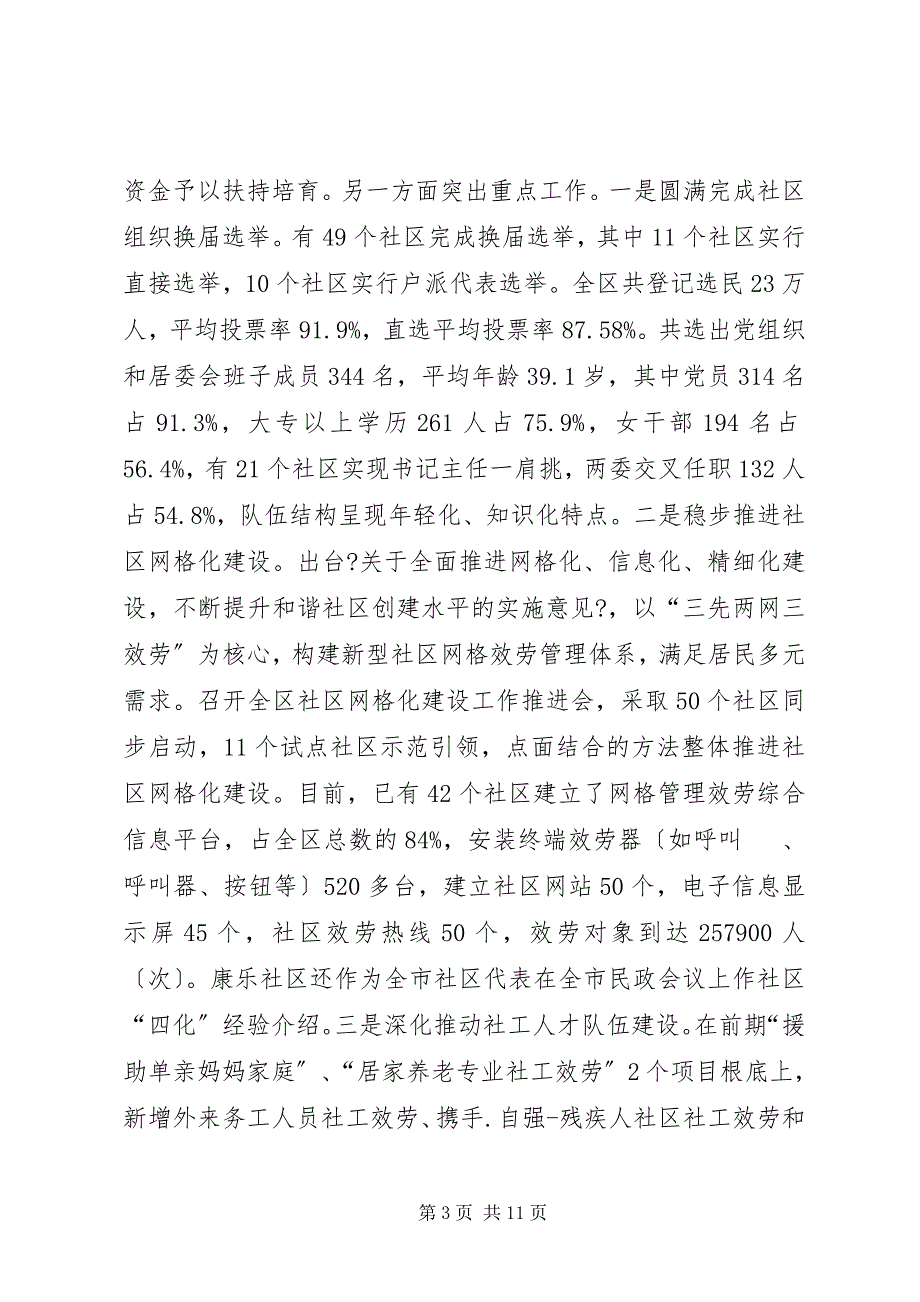 资金予以扶持培育。另一方面突出重点工作。一是圆满完成社区
组织换届选举。有 49 个社区完成换届选举，其中 11 个社区实行
直接选举，10 个社区实行户派代表选举。全区共登记选民 23 万
人，平均投票率 91.9%，直选平均投票率 87.58%。共选出党组织
和居委会班子成员 344 名，平均年龄 39.1 岁，其中党员 314 名
占 91.3%，大专以上学历 261 人占 75.9%，女干部 194 名占
56.4%，有 21 个社区实现书记主任一肩挑，两委交叉任职 132 人
占 54.8%，队伍结构呈现年轻化、知识化特点。二是稳步推进社
区网格化建设。出台?关于全面推进网格化、信息化、精细化建
设，不断提升和谐社区创建水平的实施意见?，以“三先两网三
效劳〞为核心，构建新型社区网格效劳管理体系，满足居民多元
需求。召开全区社区网格化建设工作推进会，采取 50 个社区同
步启动，11 个试点社区示范引领，点面结合的方法整体推进社
区网格化建设。目前，已有 42 个社区建立了网格管理效劳综合
信息平台，占全区总数的 84%，安装终端效劳器〔如呼叫　、
呼叫器、按钮等〕520 多台，建立社区网站 50 个，电子信息显
示屏 45 个，社区效劳热线 50 个，效劳对象到达 257900 人
〔次〕。康乐社区还作为全市社区代表在全市民政会议上作社区
“四化〞经验介绍。三是深化推动社工人才队伍建设。在前期“援
助单亲妈妈家庭〞、“居家养老专业社工效劳〞2 个项目根底上，
新增外来务工人员社工效劳、携手.自强-残疾人社区社工效劳和
第 3 页 共 11 页